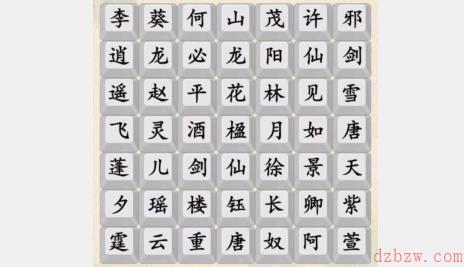 李葵何山茂许邪
逍龙必龙阳仙剑
遥赵平花林见雪
飞灵酒楹月如唐
蓬儿剑仙徐景天
夕瑶楼钰长卿紫
霆云重唐奴阿萱
dzbzw.com